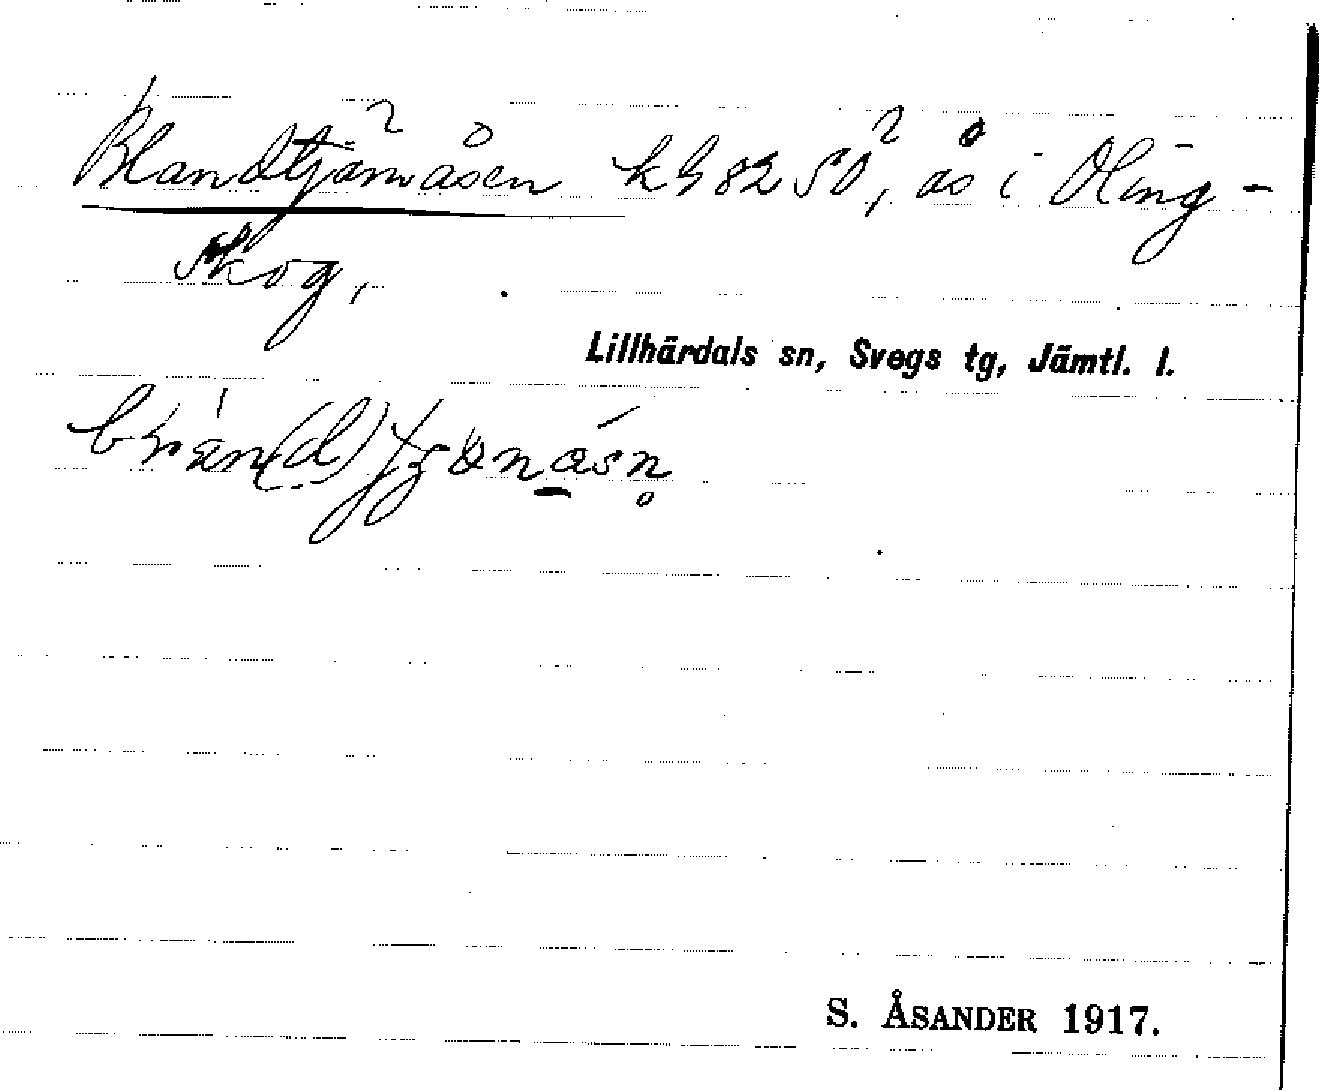 Blandtjärnåsen k482SO, ås i Öling-
skog,
Lillhärdals sn, Svegs tg, Jämtl. l.
S. ÅSANDER 1917.